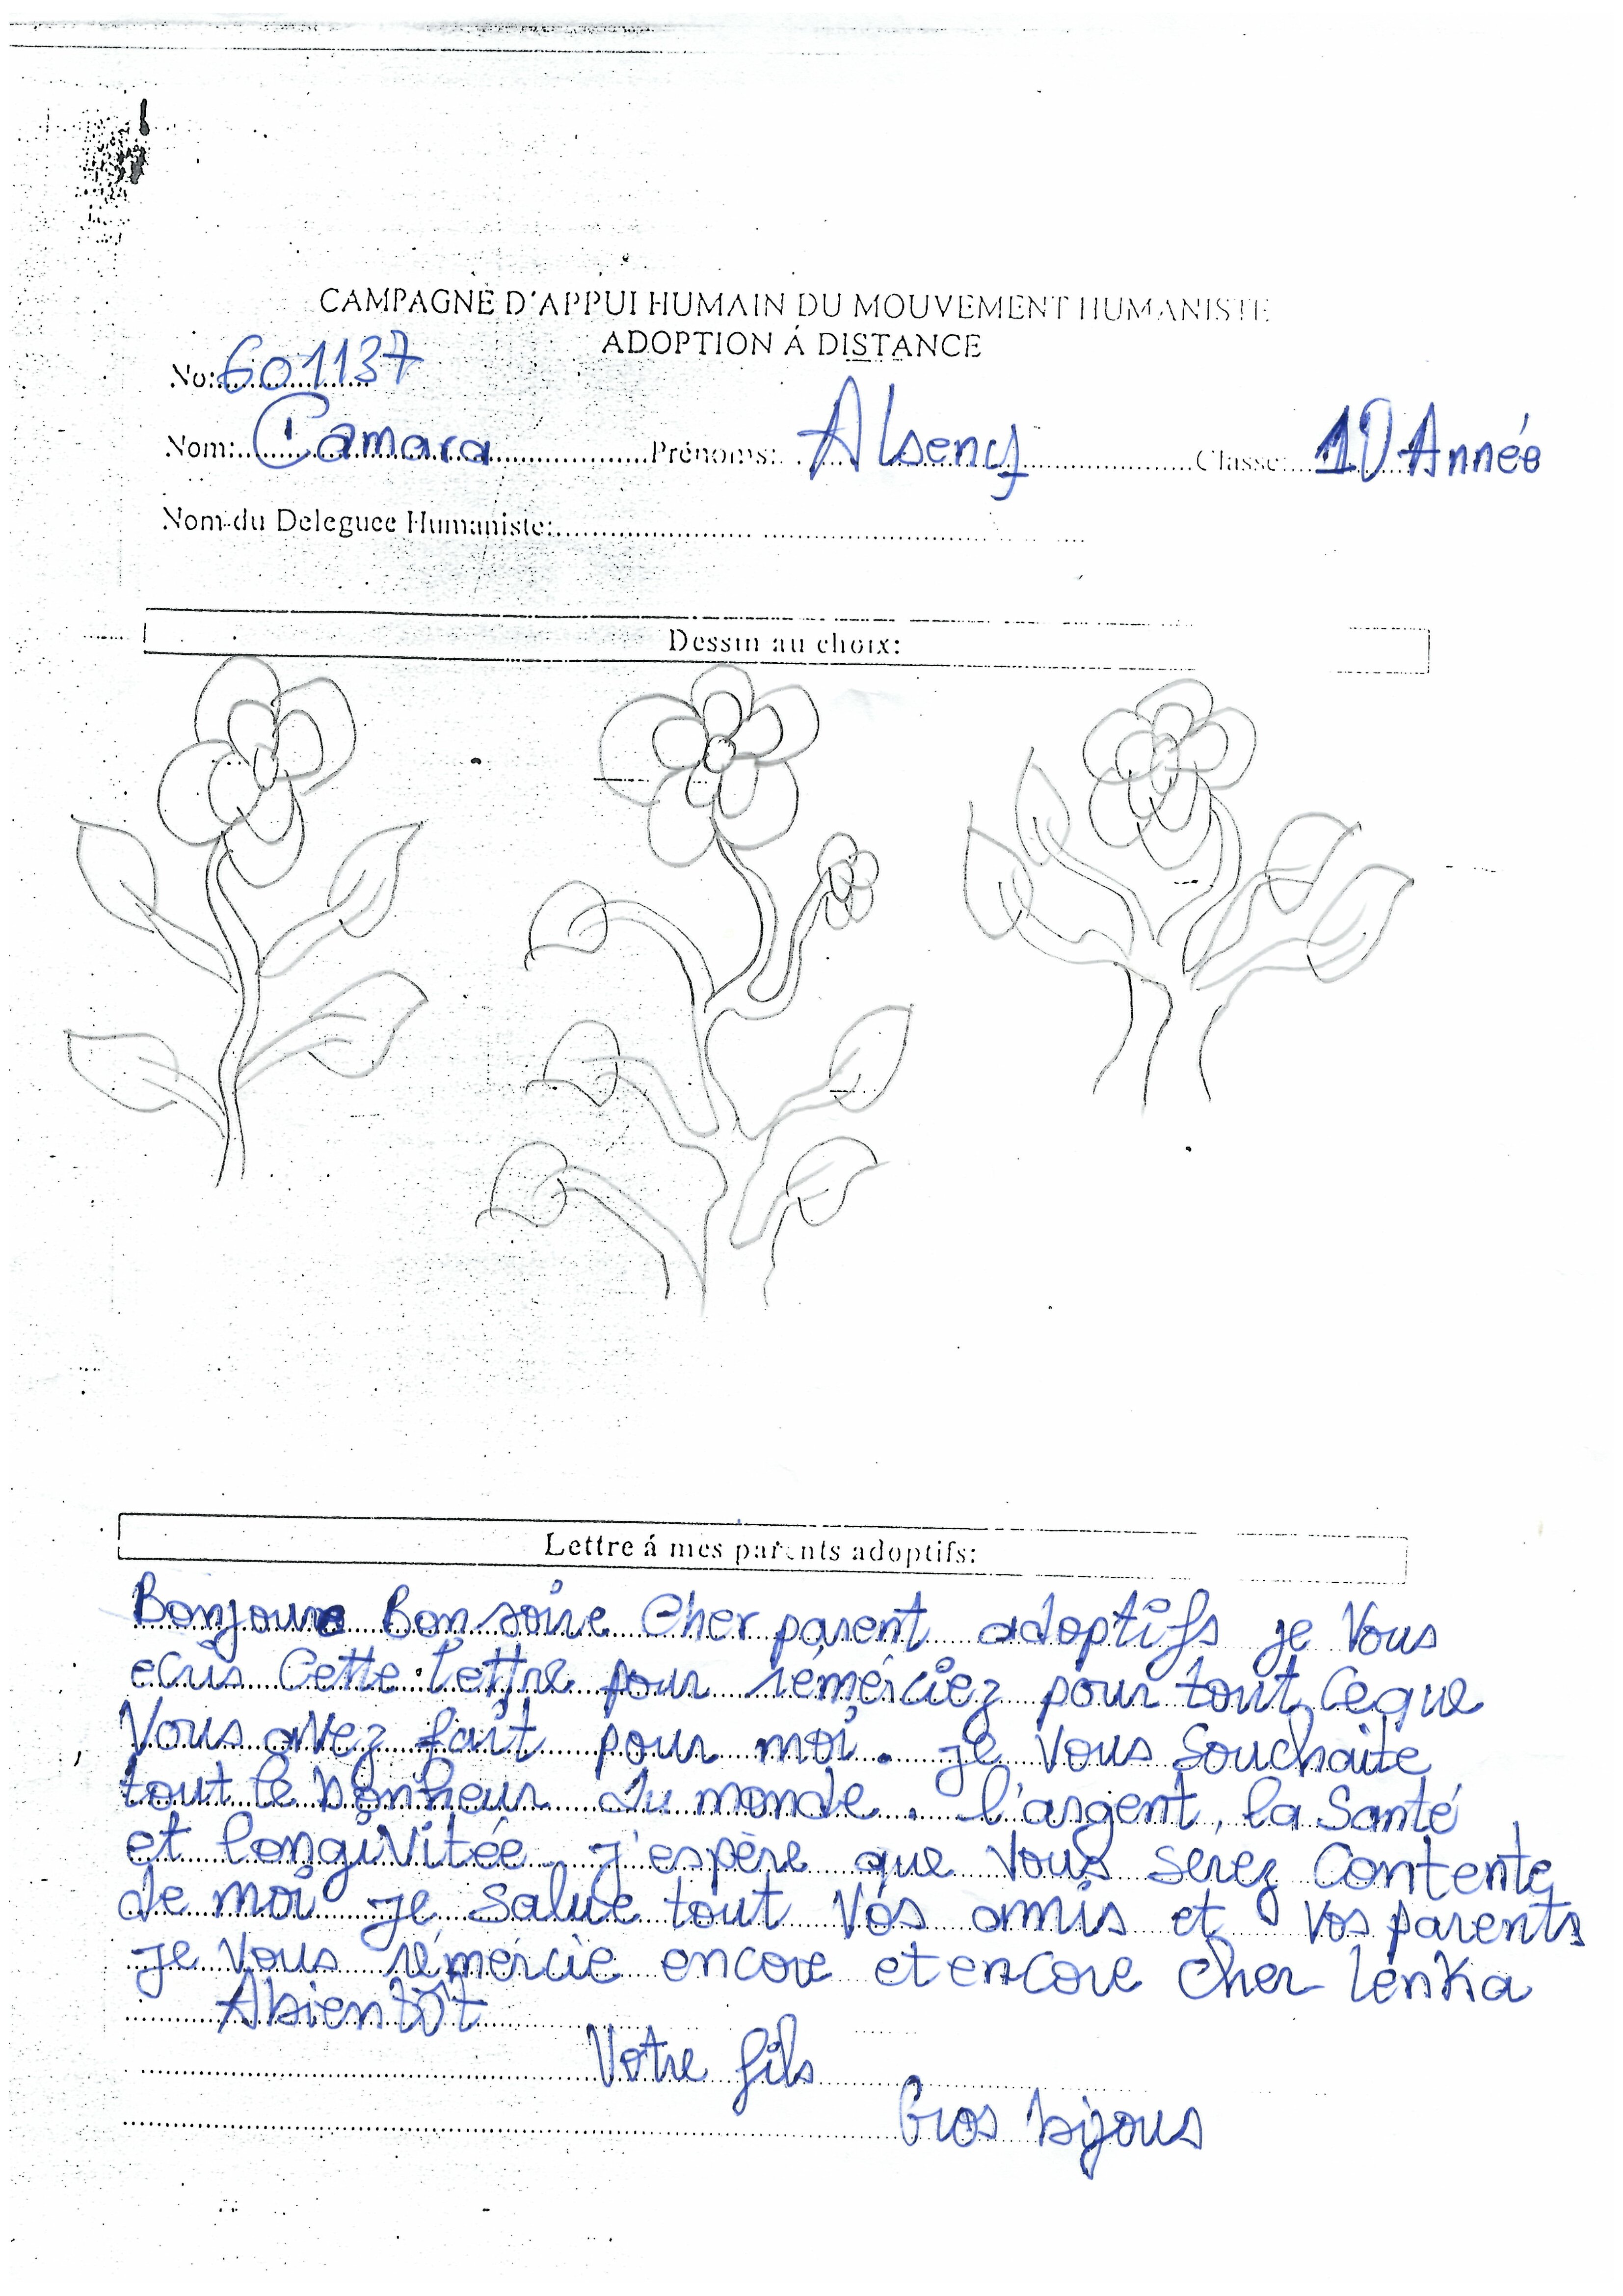 CAMPAGNE D'APPUI HUMAIN DU MOUVEMENT HUMANISTE
ADOPTION Á DISTANCE
No: 601137
Nom: Camara Prénoms: Alseny Classe: 10 Année
Nom du Deleguee Humaniste:
Dessin au choix:
Lettre á mes parents adoptifs:
Bonjoure Bon soire Cher parent adoptifs je Vous
ecris Cette lettre pour rémérciez pour tout Ceque
Vous avez fait pour moi. je Vous Souchaite
tout le bonheur du monde. l'argent, la Santé
et longivitée j'espère que Vous serez Contente
de moi je Salue tout Vos amis et Vos parents
je Vous rémércie encore et encore Cher lenka
Abientôt
Votre fils
Gros bijous